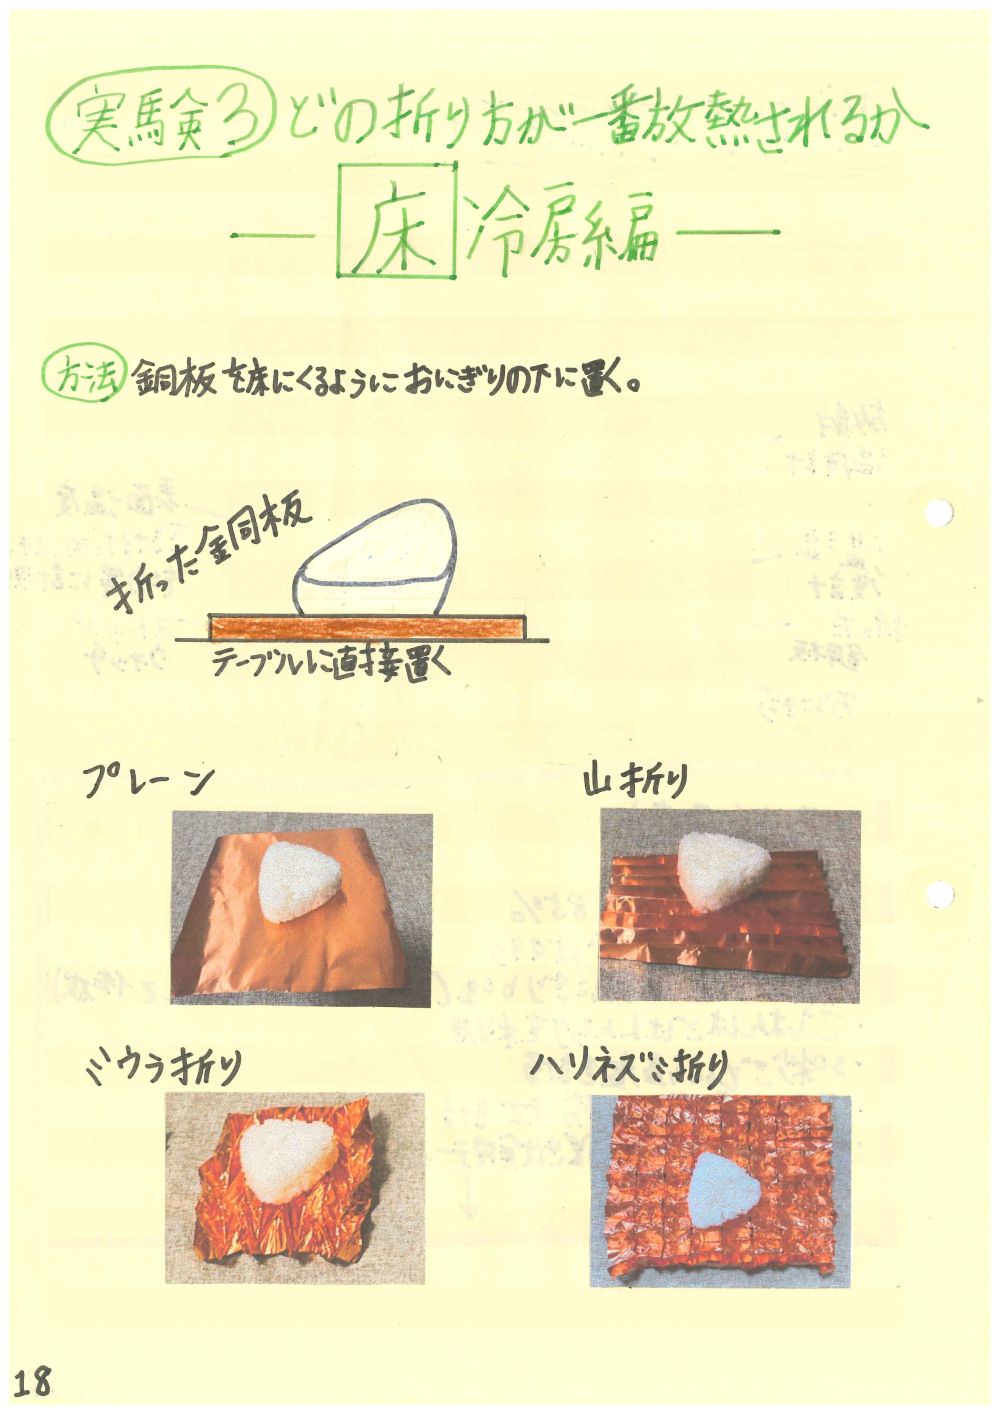 実験3 どの折り方が一番放熱されるか
床 冷房編
方法 銅板を床にくるようにおにぎりの下に置く。
折った銅板
テーブルに直接置く
プレーン
山折り
ミウラ折り
ハリネズミ折り
18